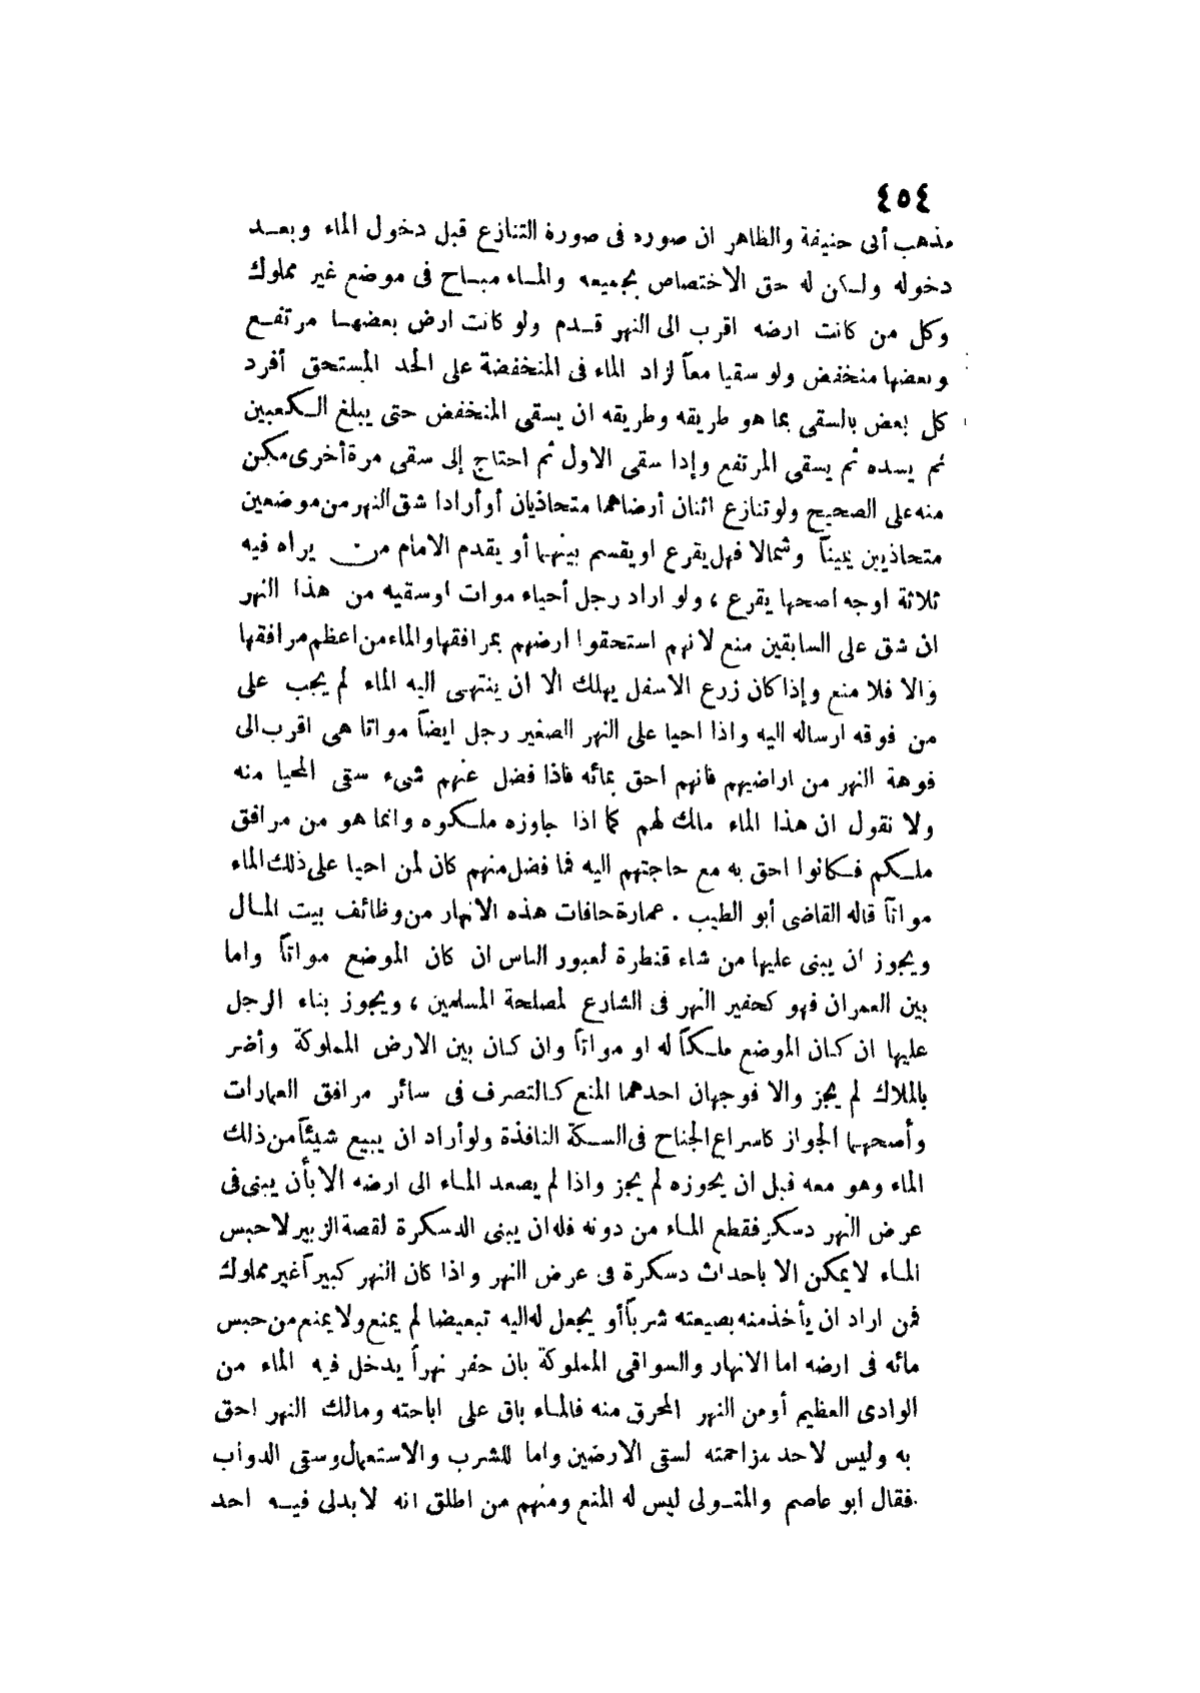 ٤٥٤
مذهب أبى حنيفة والظاهر ان صوره فى صورة التنازع قبل دخول الماء وبعد
دخوله ولكن له حق الاختصاص بجميعه والماء مباح فى موضع غير مملوك
وكل من كانت ارضه اقرب الى النهر قدم ولو كانت ارض بعضها مرتفع
وبعضها منخفض ولو سقيا معاً لزاد الماء فى المنخفضة على الحد المستحق أفرد
كل بعض بالسقى بما هو طريقه وطريقه ان يسقى المنخفض حتى يبلغ الكعبين
ثم يسده ثم يسقى المرتفع وإذا سقى الاول ثم احتاج إلى سقى مرة أخرى مكن
منه على الصحيح ولو تنازع اثنان أرضاهما متحاذيان أو أرادا شق النهر من موضعين
متحاذيين يميناً وشمالا فهل يقرع او يقسم بينهما أو يقدم الامام من يراه فيه
ثلاثة اوجه اصحها يقرع ، ولو اراد رجل أحياء موات اوسقيه من هذا النهر
ان شق على السابقين منع لانهم استحقوا ارضهم بمرافقها والماء من اعظم مرافقها
والا فلا منع وإذا كان زرع الاسفل يهلك الا ان ينتهى اليه الماء لم يجب على
من فوقه ارساله اليه واذا احيا على النهر الصغير رجل ايضاً مواتا هى اقرب الى
فوهة النهر من اراضيهم فانهم احق بمائه فاذا فضل عنهم شىء سقى المحيا منه
ولا نقول ان هذا الماء مالك لهم كما اذا جاوزه ملكوه وانما هو من مرافق
ملكهم فكانوا احق به مع حاجتهم اليه فما فضل منهم كان لمن احيا على ذلك الماء
مواتاً قاله القاضى أبو الطيب . عمارة حافات هذه الانهار من وظائف بيت المال
ويجوز ان يبنى عليها من شاء قنطرة لعبور الناس ان كان الموضع مواتاً واما
بين العمران فهو كحفير النهر فى الشارع لمصلحة المسلمين ، ويجوز بناء الرجل
عليها ان كان الموضع ملكاً له او مواتاً وان كان بين الارض المملوكة وأضر
بالملاك لم يجز والا فوجهان احدهما المنع كالتصرف فى سائر مرافق العمارات
وأصحهما الجواز كاسراع الجناح فى السكة النافذة ولو أراد ان يبيع شيئاً من ذلك
الماء وهو معه قبل ان يحوزه لم يجز واذا لم يصعد الماء الى ارضه الا بأن يبنى فى
عرض النهر دسكر فقطع الماء من دونه فله ان يبنى الدسكرة لقصة الزبير لا حبس
الماء لا يمكن الا باحداث دسكرة فى عرض النهر واذا كان النهر كبيراً غير مملوك
فمن اراد ان يأخذ منه بصيعته شرباً أو يجعل له اليه تبعيضا لم يمنع ولا يمنع من حبس
مائه فى ارضه اما الانهار والسواقى المملوكة بان حفر نهراً يدخل فيه الماء من
الوادى العظيم أو من النهر المحرق منه فالماء باق على اباحته ومالك النهر احق
به وليس لاحد مزاحمته لسقى الارضين واما للشرب والاستعمال وسقى الدواب
فقال ابو عاصم والمتولى ليس له المنع ومنهم من اطلق انه لا يدلى فيه احد